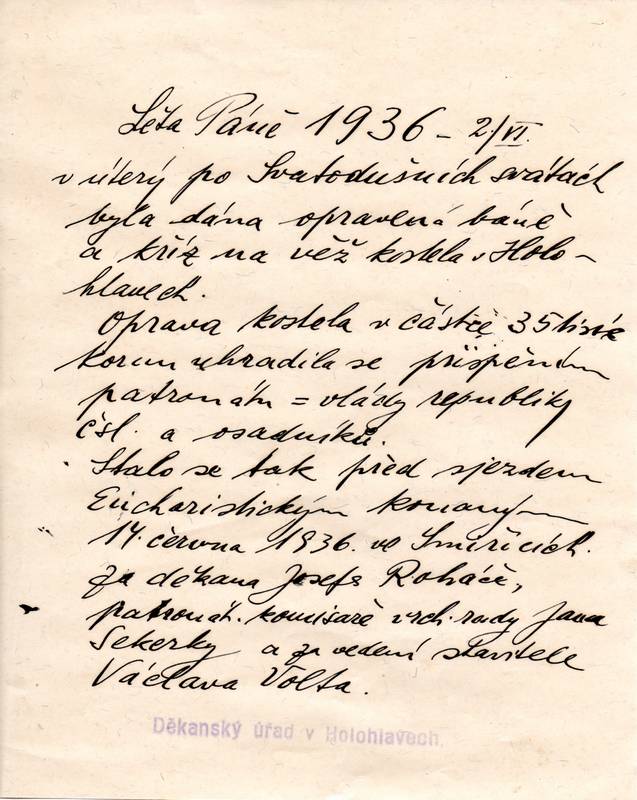 Léta Páně 1936 – 2./VI.
v úterý po Svatodušních svátcích
byla dána opravená báně
a kříž na věž kostela v Holo-
hlavech.
Oprava kostela v částce 35 tisíc
korun uhradila se přispěním
patronátu = vlády republiky
čsl. a osadníků.
Stalo se tak před sjezdem
Eucharistickým konaným
14. června 1936. ve Smiřicích.
za děkana Josefa Roháče,
patronát. komisaře vrch. rady Jana
Sekerky a za vedení stavitele
Václava Volta.
Děkanský úřad v Holohlavech.